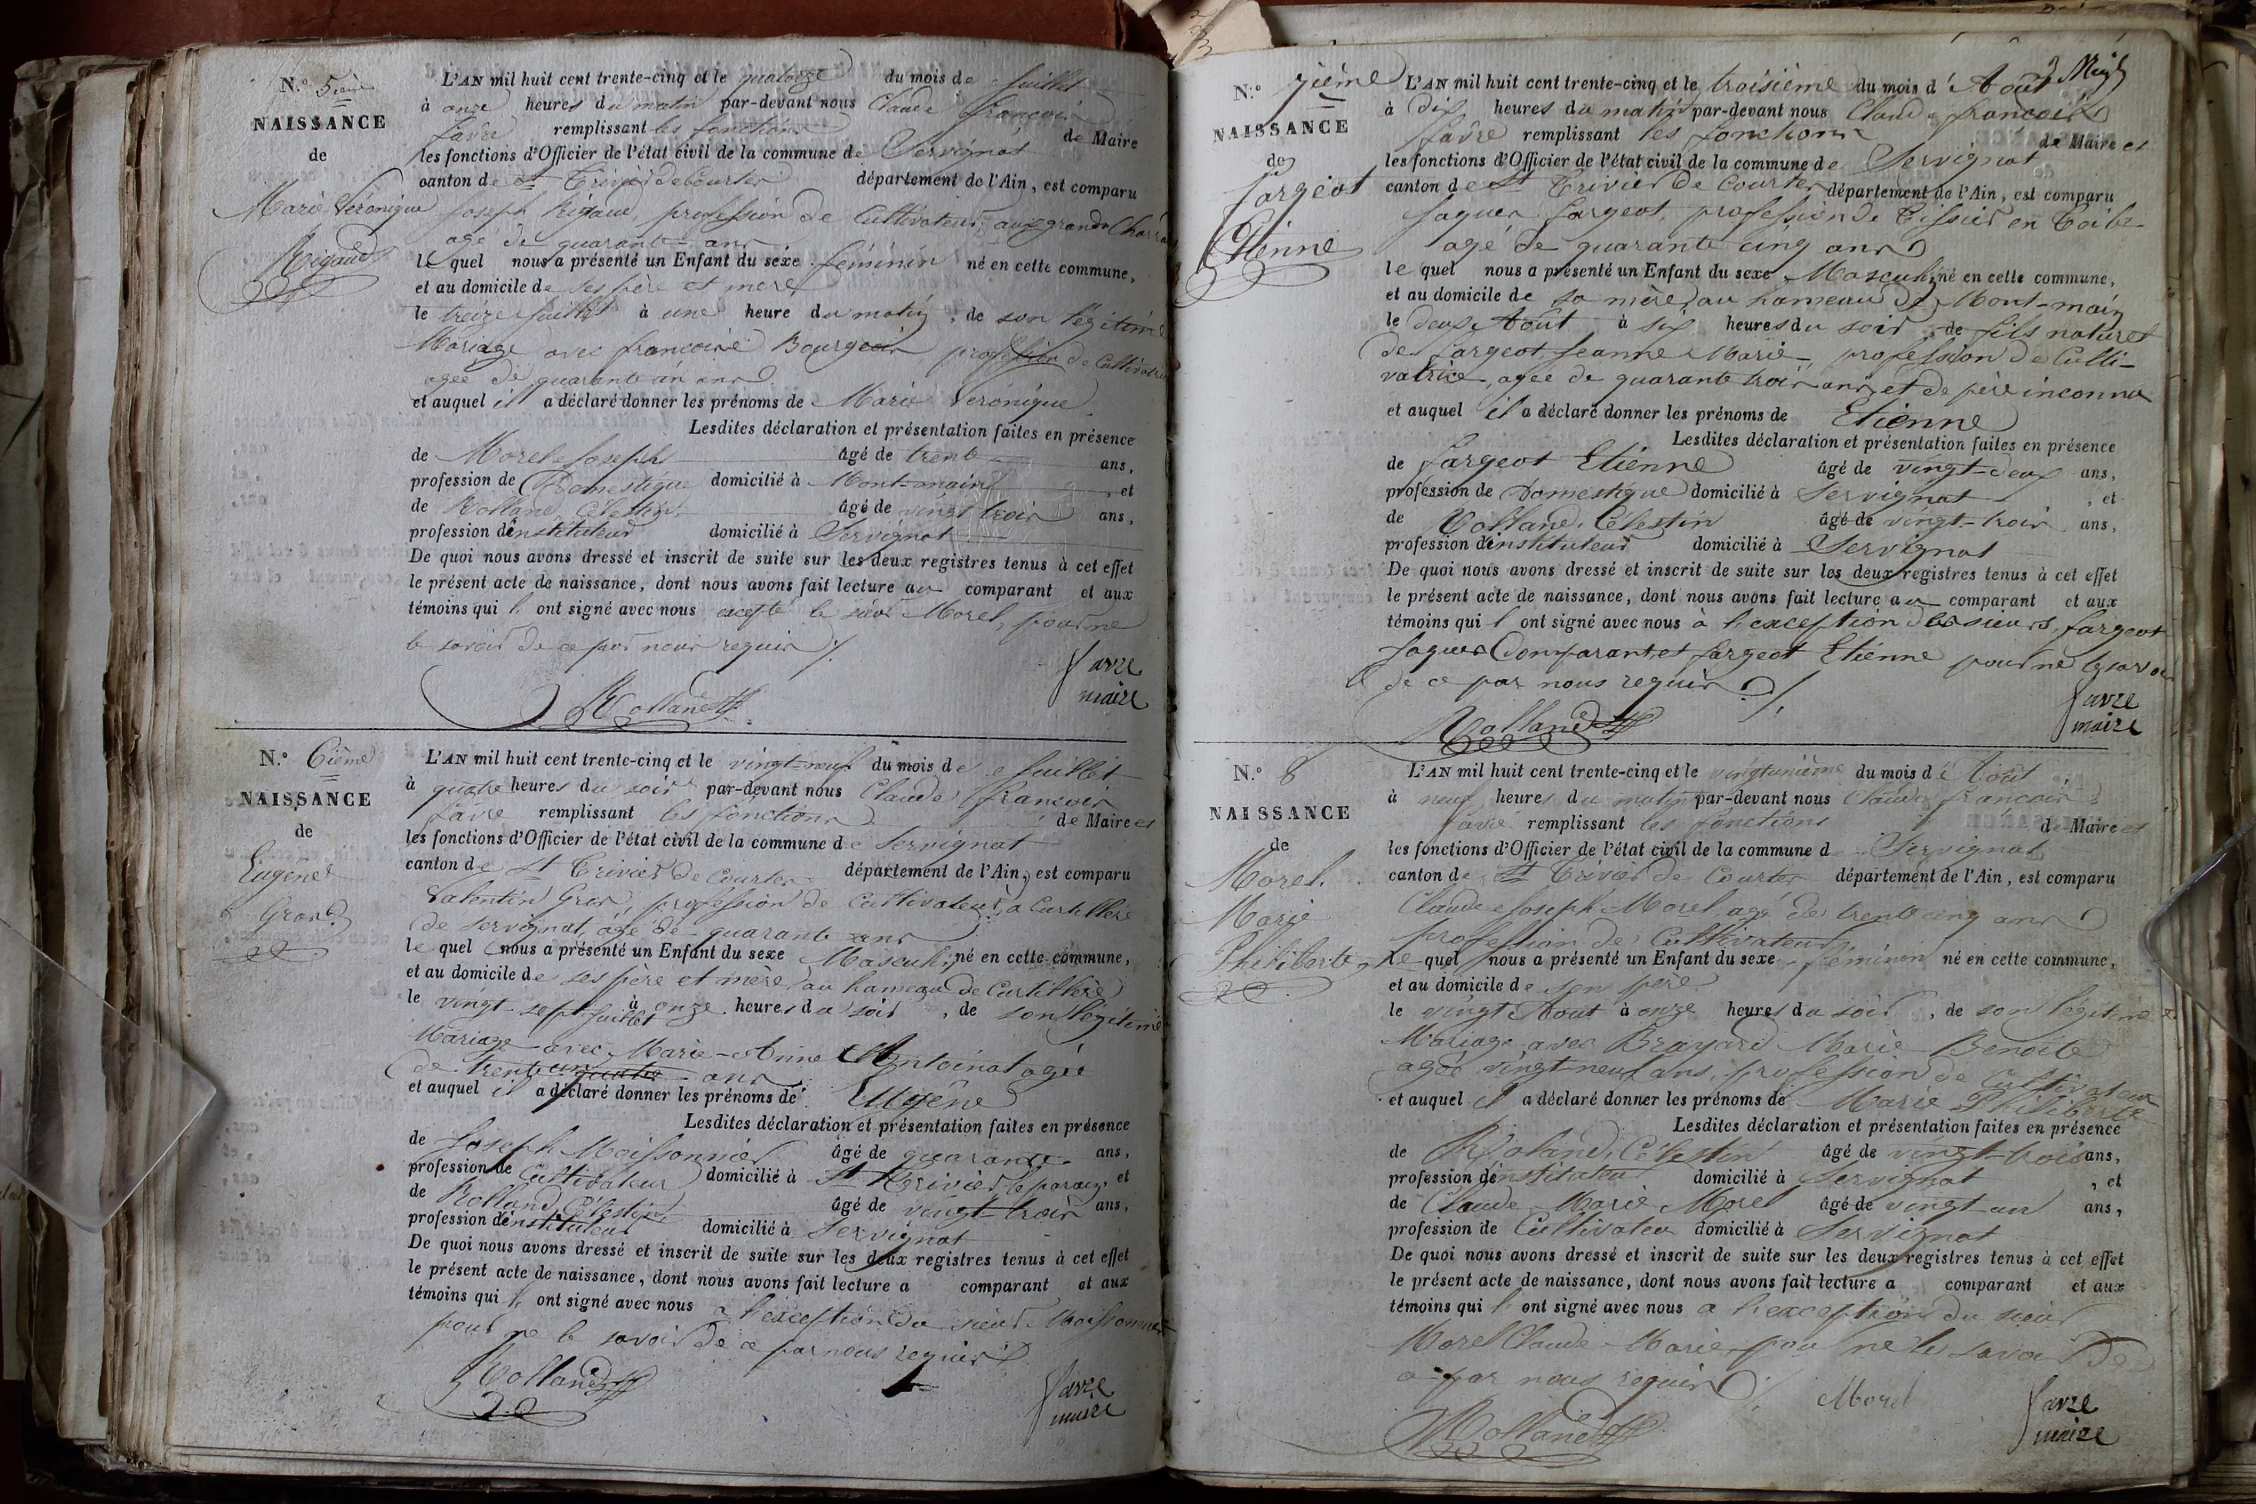 N.º 5ième
NAISSANCE
de
Marie Véronique
Rigaud
L'AN mil huit cent trente-cinq et le quatorze du mois de Juillet
à onze heures du matin par-devant nous Claude françois
favre remplissant les fonctions de Maire
les fonctions d'Officier de l'état civil de la commune de Servignat
canton de St Trivier de Courtes département de l'Ain, est comparu
Joseph Rigaud, profession de Cultivateur, aux grands Charr
agé de quarante ans
le quel nous a présenté un Enfant du sexe féminin né en cette commune,
et au domicile de ses père et mère
le treize Juillet à une heure du matin, de son légitime
Mariage avec françoise Bourgeois profession de Cultivatrice
agée de quarante un ans
et auquel il a déclaré donner les prénoms de Marie Veronique
Lesdites déclaration et présentation faites en présence
de Morel Joseph âgé de trente ans,
profession de Domestique domicilié à Mont-main, et
de Rolland, Célestin âgé de vingt trois ans,
profession d'instituteur domicilié à Servignat
De quoi nous avons dressé et inscrit de suite sur les deux registres tenus à cet effet
le présent acte de naissance, dont nous avons fait lecture au comparant et aux
témoins qui l' ont signé avec nous excepté le sieur Morel, pour ne
le savoir de ce par nous requis ./.
Rolland
favre
maire
N.º 6ième
NAISSANCE
de
Eugène
Gros
L'AN mil huit cent trente-cinq et le vingt-neuf du mois de Juillet
à quatre heures du soir par-devant nous Claude françois
favre remplissant les fonctions de Maire et
les fonctions d'Officier de l'état civil de la commune de Servignat
canton de St Trivier de Courtes département de l'Ain, est comparu
Valentin Gros, profession de Cultivateur, a Curtillère
de servignat, agé de quarante ans
le quel nous a présenté un Enfant du sexe Masculin, né en cette commune,
et au domicile de ses père et mère au hameau de Curtillère
le vingt-sept Juillet à onze heures du soir, de son légitime
Mariage avec Marie-Anne Antoinat agée
de trente un quatre ans
et auquel il a déclaré donner les prénoms de Eugène
Lesdites déclaration et présentation faites en présence
de Joseph Moissonnier âgé de quarante ans,
profession de Cultivateur domicilié à St Trivier et
de Rolland, Célestin âgé de vingt-trois ans,
profession d'instituteur domicilié à Servignat
De quoi nous avons dressé et inscrit de suite sur les deux registres tenus à cet effet
le présent acte de naissance, dont nous avons fait lecture a comparant et aux
témoins qui l' ont signé avec nous à l'exception du sieur Moissonnier
pour ne le savoir de ce par nous requis
Rolland
favre
maire
N.º 7ième
NAISSANCE
de
Jargeot
Etienne
L'AN mil huit cent trente-cinq et le troisième du mois d'Août
à dix heures du matin par-devant nous Claude françois
favre remplissant les fonctions de Maire et
les fonctions d'Officier de l'état civil de la commune de Servignat
canton de St Trivier de Courtes département de l'Ain, est comparu
Jaques Jargeot, profession de Tissier en Toile
agé de quarante cinq ans
le quel nous a présenté un Enfant du sexe Masculin, né en cette commune,
et au domicile de sa mère au hameau de Mont-main
le deux Août à six heures du soir, de fils naturel
de Jargeot Jeanne Marie, profession de Culti-
vatrice, agée de quarante trois ans et de père inconnu
et auquel il a déclaré donner les prénoms de Etienne
Lesdites déclaration et présentation faites en présence
de Jargeot Etienne âgé de vingt-deux ans,
profession de Domestique domicilié à Servignat, et
de Rolland, Célestin âgé de vingt-trois ans,
profession d'instituteur domicilié à Servignat
De quoi nous avons dressé et inscrit de suite sur les deux registres tenus à cet effet
le présent acte de naissance, dont nous avons fait lecture au comparant et aux
témoins qui l' ont signé avec nous à l'exception des sieurs, Jargeot
Jaques Comparant, et Jargeot Etienne pour ne le savoir
de ce par nous requis ./.
Rolland
favre
maire
N.º 8
NAISSANCE
de
Morel.
Marie
Philiberte
L'AN mil huit cent trente-cinq et le vingtunième du mois d'Août
à neuf heures du matin par-devant nous Claude francois
favre remplissant les fonctions de Maire et
les fonctions d'Officier de l'état civil de la commune d Servignat
canton de St Trivier de Courtes département de l'Ain, est comparu
Claude Joseph Morel, agé de trente cinq ans
profession de Cultivateur
le quel nous a présenté un Enfant du sexe féminin né en cette commune,
et au domicile de son père
le vingt Août à onze heures du soir, de son légitime
Mariage avec Brayard Marie Benoite
agée vingt-neuf ans, profession de Cultivateur
et auquel il a déclaré donner les prénoms de Marie Philiberte
Lesdites déclaration et présentation faites en présence
de Roland, Célestin âgé de vingt-trois ans,
profession d'instituteur domicilié à Servignat, et
de Claude Marie Morel âgé de vingt-un ans,
profession de Cultivateur domicilié à Servignat
De quoi nous avons dressé et inscrit de suite sur les deux registres tenus à cet effet
le présent acte de naissance, dont nous avons fait lecture a comparant et aux
témoins qui l' ont signé avec nous a l'exception du sieur
Morel Claude-Marie, pour ne le savoir de
ce par nous requis
Morel
Rolland
favre
maire